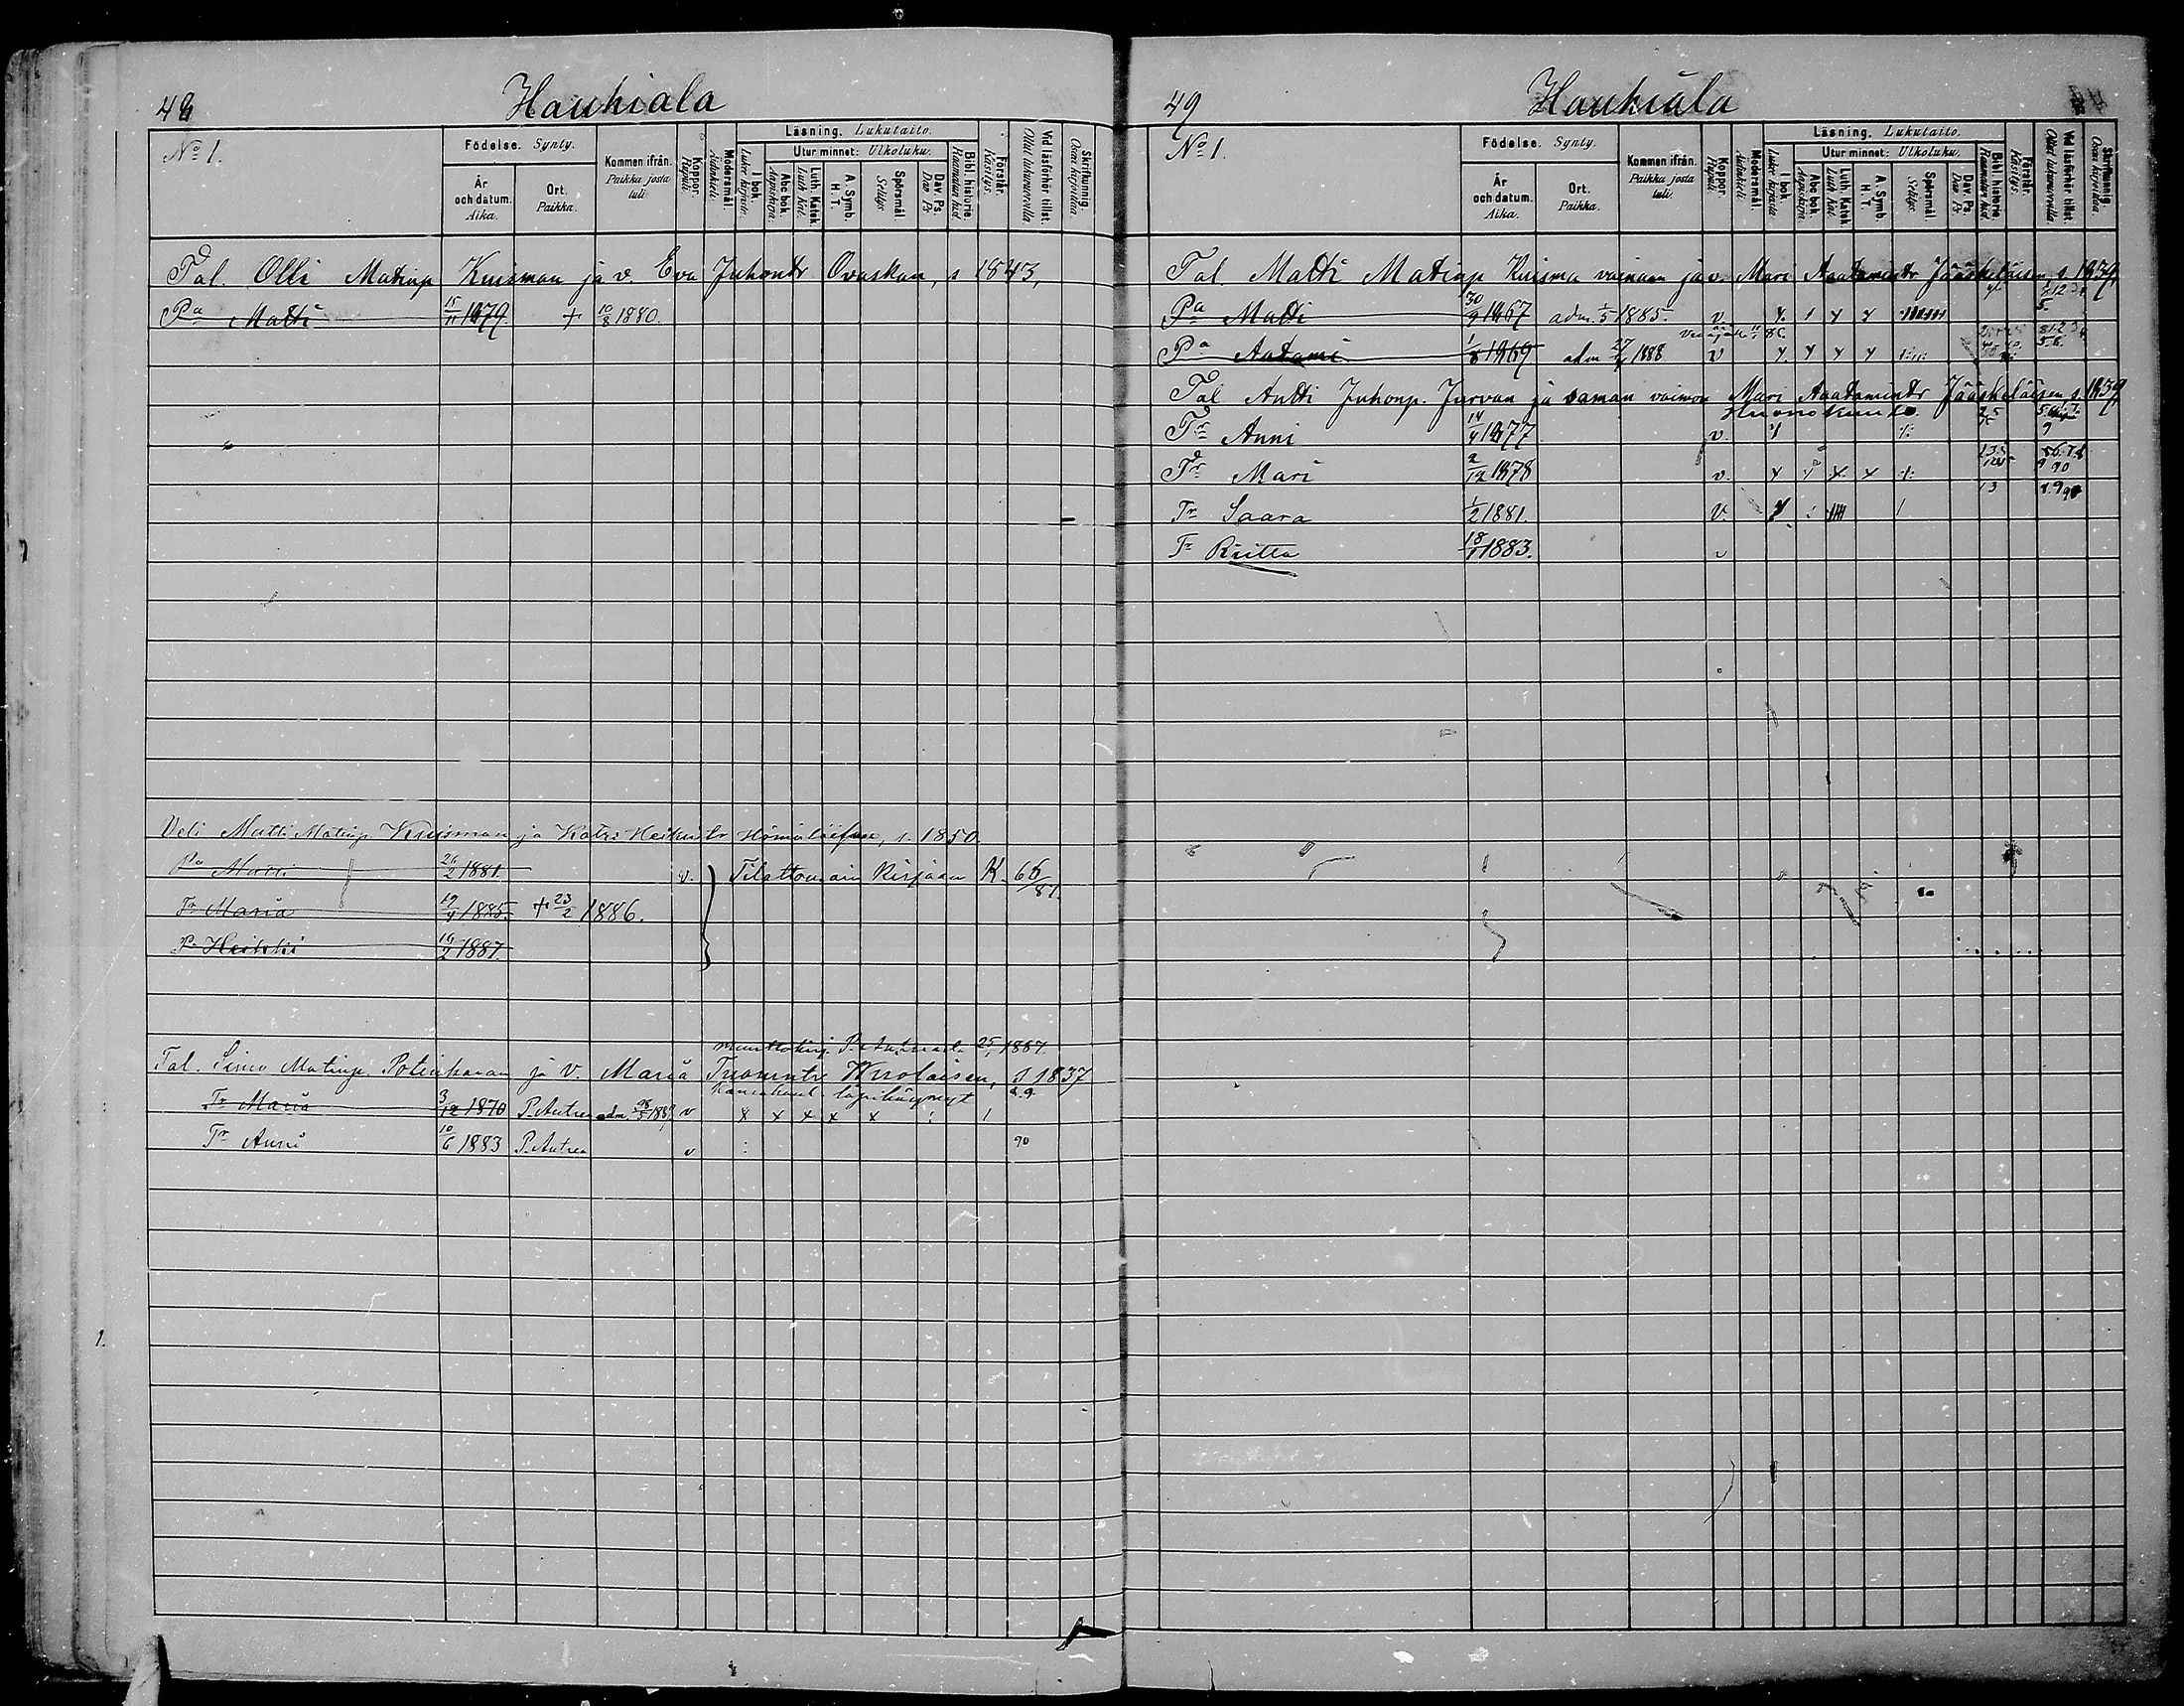 48 Hauhiala
No 1.
Födelse. Synty.
År och datum. Aika.
Ort. Paikka.
Kommen ifrån. Paikka josta tuli.
Koppor. Rupuli.
Modersmål. Äidinkieli.
Läsning. Lukutaito.
I bok. Lukee kirjasta.
Utur minnet: Ulkoluku.
Abc bok. Aapiskirja.
Luth. Katek. Luth. Kat.
A. Symb. H. T.
Spörsmål Selitys.
Dav. Ps. Dav. Ps
Bibl. historie. Raamatun hist.
Förstår. Käsitys.
Vid läsförhör tillst. Ollut lukuvuorolla.
Skrifkunnig. Osaa kirjoittaa.
Tal. Olli Matinp Kuisman ja v. Eva Juhontr Ovaskan, s 1843,
Pa Matti 15/11 1879. + 10/8 1880.
Veli Matti Matinp. Kuisman ja Katri Heikintr s. 1850.
Pa Matti 26/2 1881. v. Tilattomain Kirjaan K. 66/87.
Tr Maria 19/4 1885. + 23/2 1886.
Pa Heikki 16/2 1887.
muuttokirj. P. Antreasta 25/ 1887.
Tal. Simo Matinp. Potinkaran ja v. Maria Tuomintr s 1837
Tr Maria 3/12 1870 P. Antrea adm. 28/5 1887 v x x x x x : 1 8.9
Tr Anni 10/6 1883 P. Antrea v : 90
49 Hauhiala
No 1.
Födelse. Synty.
År och datum. Aika.
Ort. Paikka.
Kommen ifrån. Paikka josta tuli.
Koppor. Rupuli.
Modersmål. Äidinkieli.
Läsning. Lukutaito.
I bok. Lukee kirjasta.
Utur minnet: Ulkoluku.
Abc bok. Aapiskirja.
Luth. Katek Luth. Kat.
A. Symb. H. T.
Spörsmål Selitys.
Dav. Ps. Dav. Ps
Bibl. historie Raamatun hist.
Förstår. Käsitys.
Vid läsförhör tillst. Ollut lukuvuorolla.
Skrifkunnig. Osaa kirjoittaa.
Tal. Matti Matinp Kuisma vainaan ja v. Mari Aadamintr Jääskeläisen s. 1839,
Pa Matti 30/9 1867 adm. 1/5 1885. v.
Pa Aatami 1/8 1869 adm 27/ 1888 v
Tal Antti Juhonp. Jurvan ja saman vaimon Mari Aadamintr Jääskeläisen s. 1839
Tr Anni 14/4 1877 v. 25 9
Tr Mari 2/12 1878 v. 9 90
Tr Saara 1/2 1881. v. 13 8.9 90
Tr Riitta 18/1 1883. v
1.